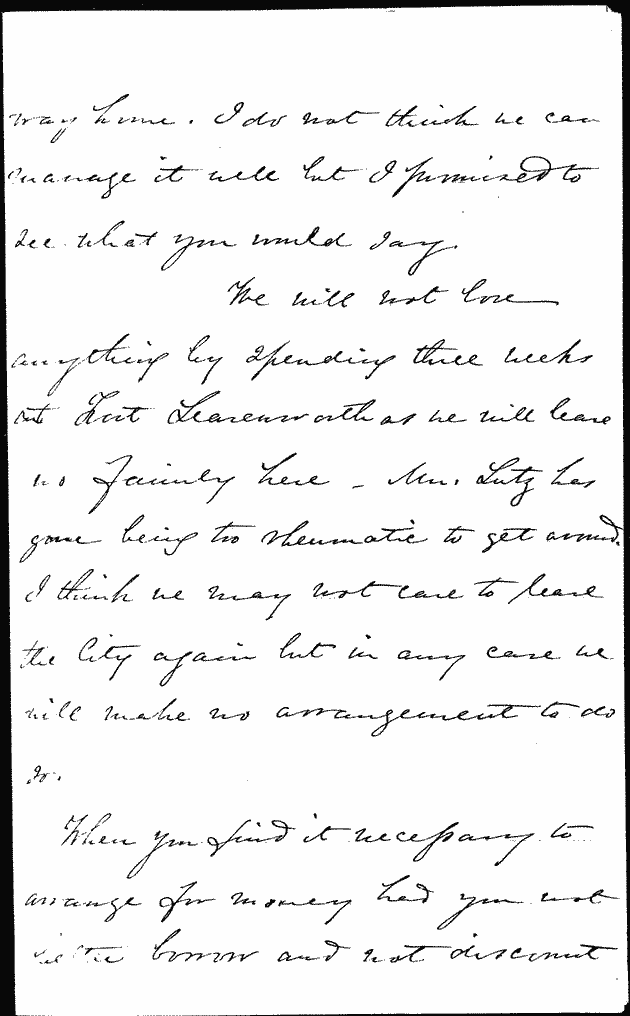 way home. I do not think we can
manage it well but I promised to
see what you would say.
We will not lose
anything by spending three weeks
at Fort Leavenworth as we will leave
no family here - Mrs. Lutz has
gone being too rheumatic to get around.
I think we may not care to leave
the City again but in any case we
will make no arrangement to do
so.
When you find it necessary to
arrange for money had you not
better borrow and not discount